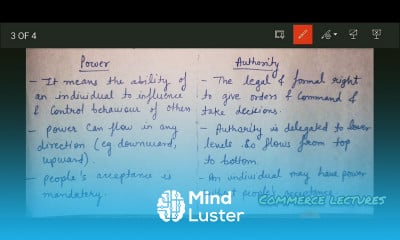 3 OF 4
Power
- It means the ability of
an individual to influence
& control behaviour of others
- Power can flow in any
direction (eg downward,
upward).
- People's acceptance is
mandatory.
Authority
- The legal & formal right
to give orders & command &
take decisions.
- Authority is delegated to lower
levels so flows from top
to bottom.
- An individual may have power
people's acceptance
COMMERCE LECTURES
Mind
Luster